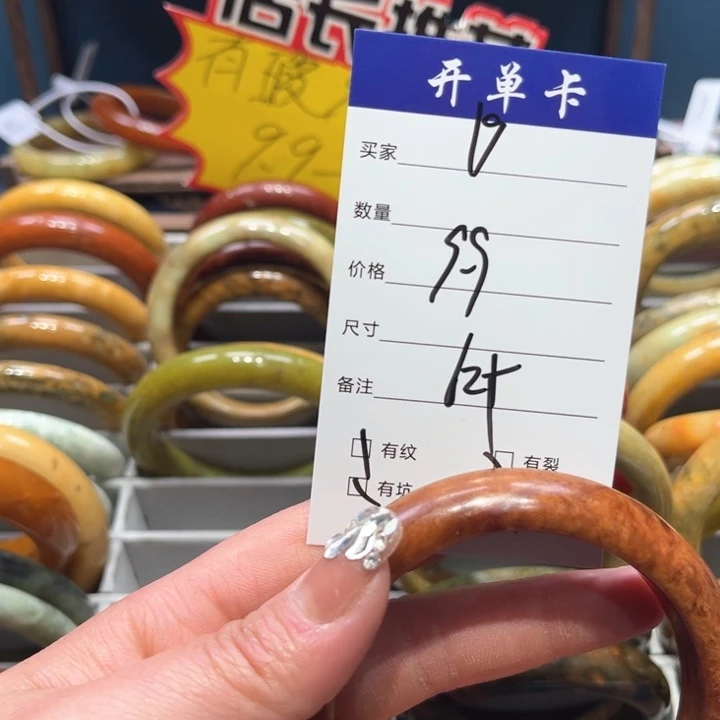 店长推荐
有瑕
9.9
开单卡
买家
数量
价格 9.9
尺寸
备注
有纹 有裂
有坑